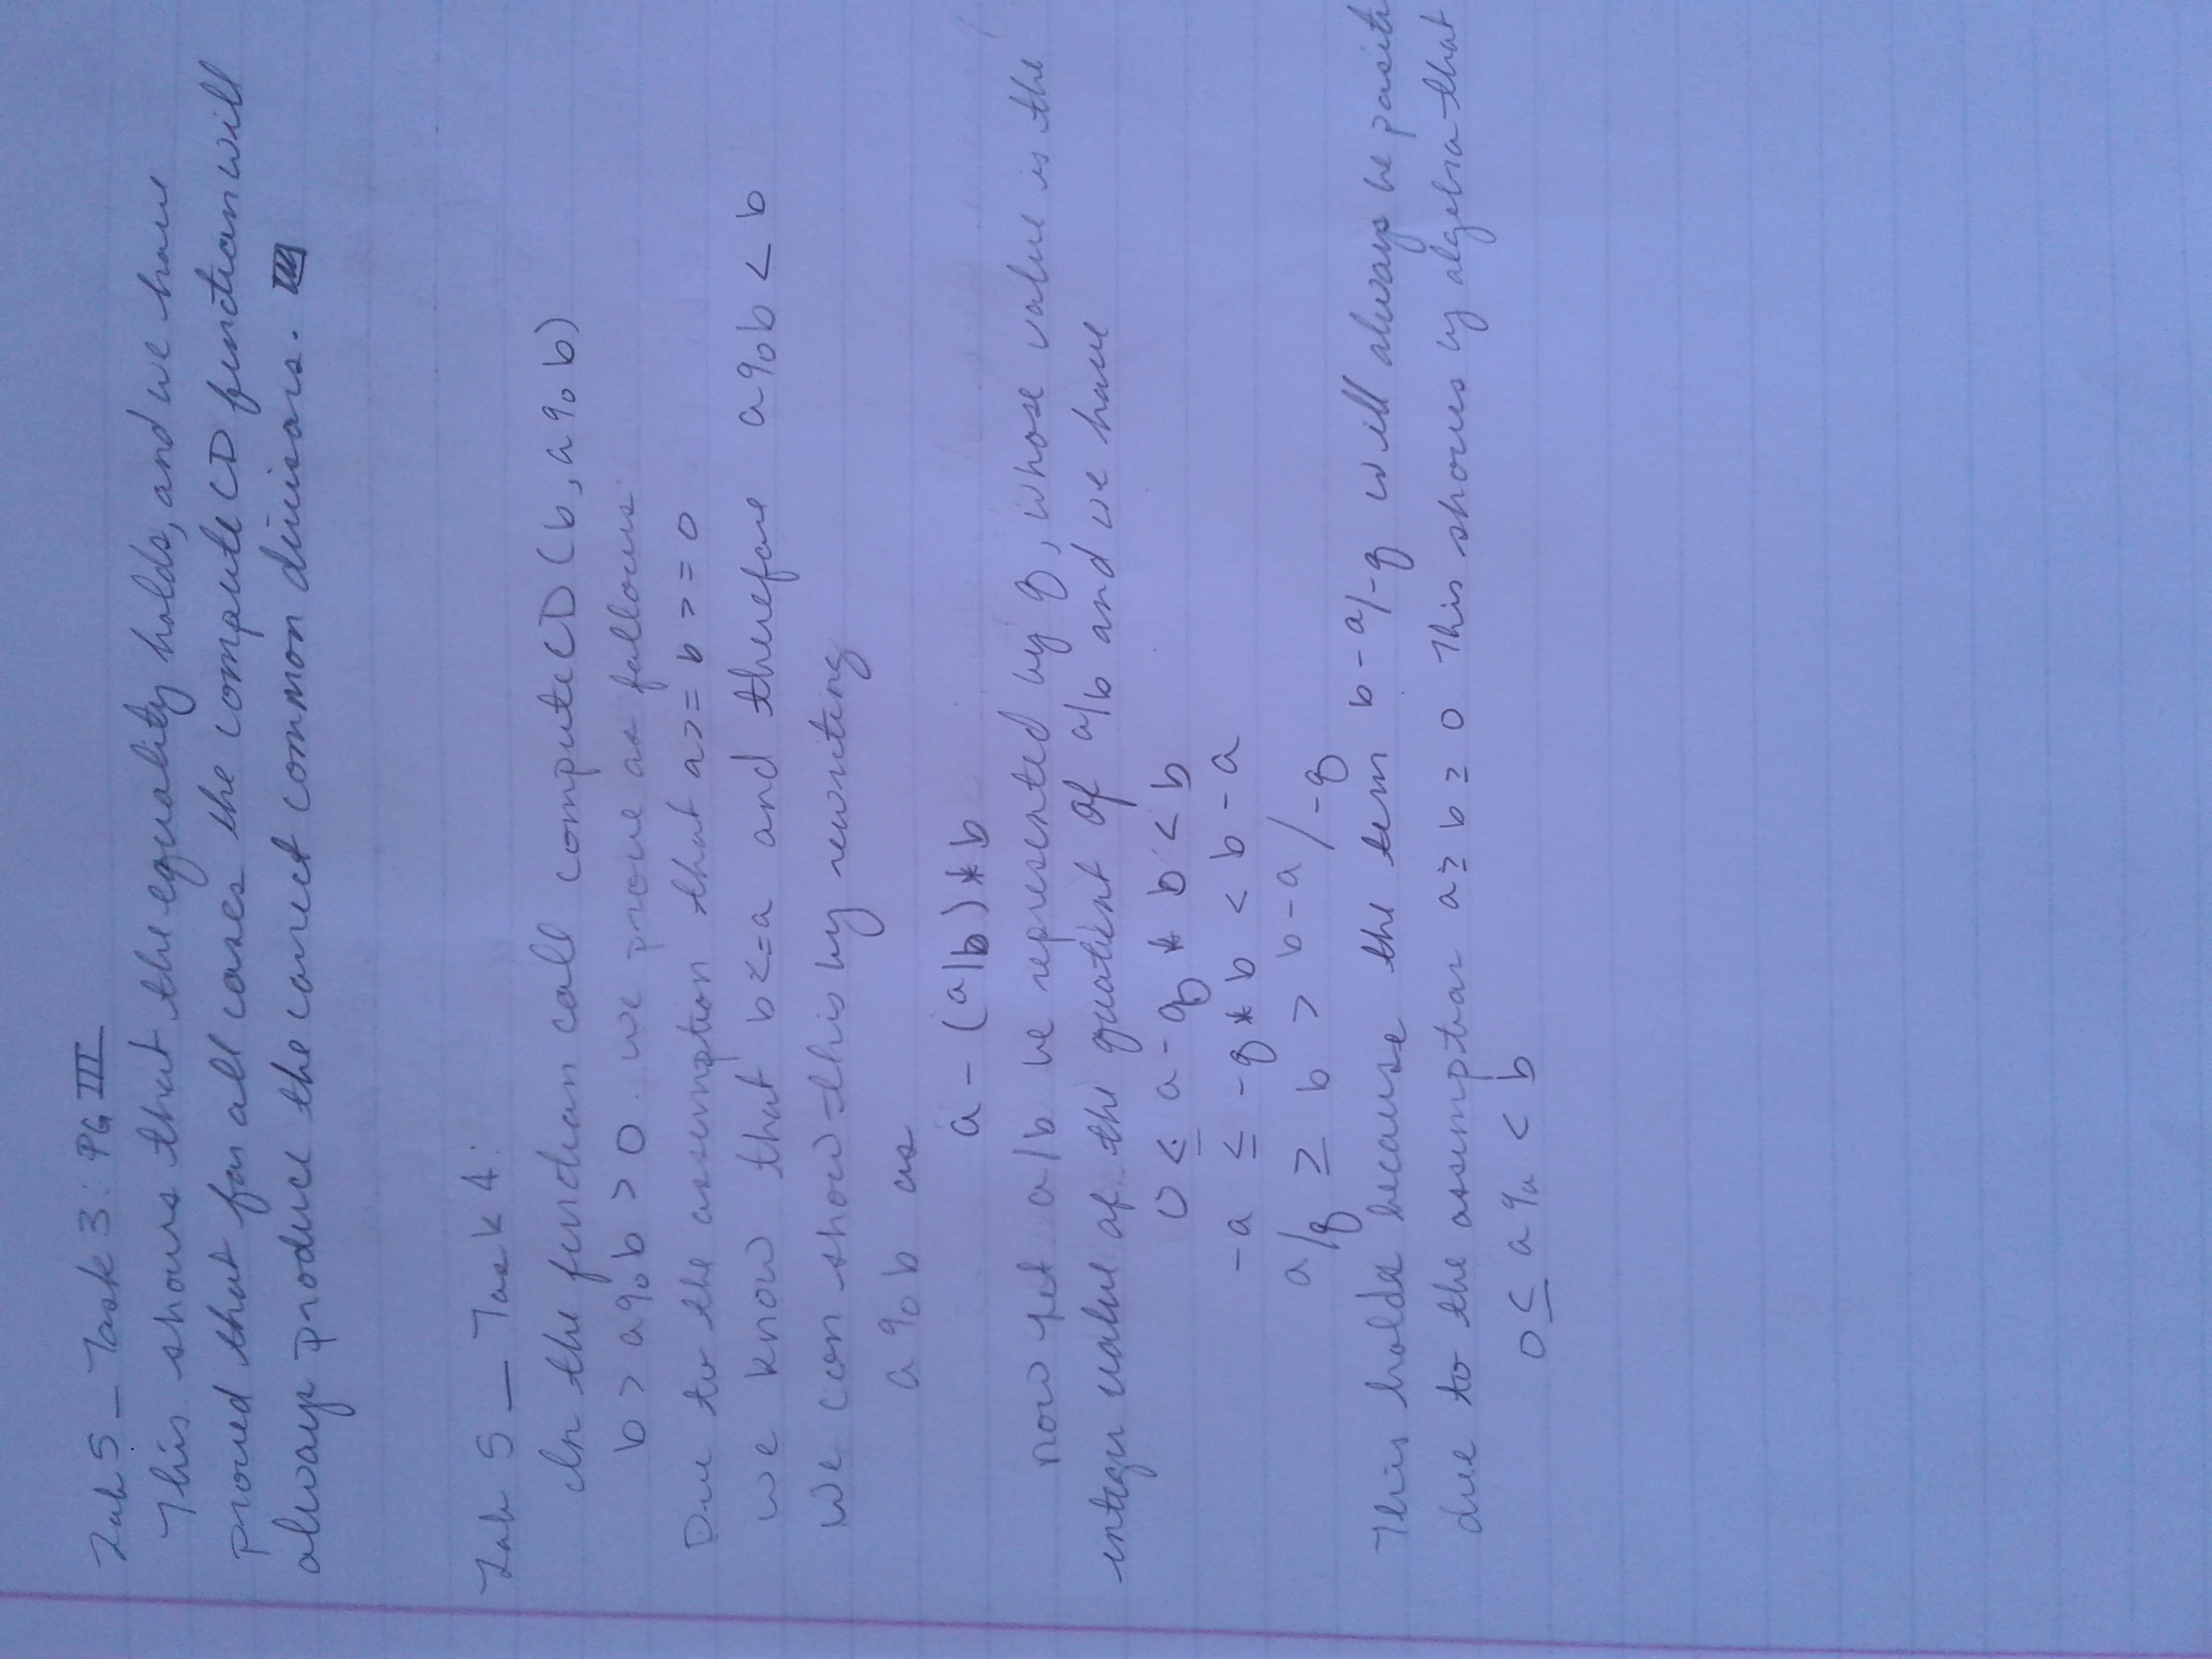 Lab 5 - Task 3: PG III
This shows that the equality holds, and we have
proved that for all cases the compute CD function will
always produce the correct common divisors.
Lab 5 - Task 4:
In the function call compute CD (b, a % b)
b > a % b > 0. we prove as follows
Due to the assumption that a >= b >= 0
we know that b <= a and therefore a % b < b
We can show this by rewriting
a % b as
a - (a/b) * b
now let a/b be represented by q, whose value is the
integer value of the quotient of a/b and we have
0 ≤ a - q * b < b
-a ≤ -q * b < b - a
a/q ≥ b > b - a/-q
This holds because the term b - a/-q will always be posit
due to the assumption a ≥ b ≥ 0 This shows by algebra that
0 ≤ a % < b